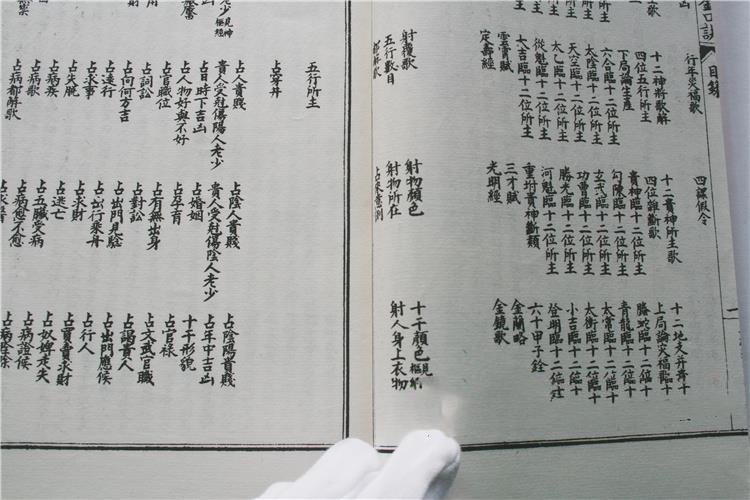 目錄
一
行年災福歌 四課假令
十二神將歌解 十二貴神所主歌 十二地支并
四位五行所主 四位雜斷歌 上局論災福十
下局論生產 貴神臨十二位所主 螣蛇臨十二位
六合臨十二位所主 勾陳臨十二位所主 青龍臨十二位
太陰臨十二位所主 玄武臨十二位所主 太常臨十二位
天空臨十二位所主 功曹臨十二位所主 太衝臨十二位
太乙臨十二位所主 勝光臨十二位所主 小吉臨十二位
從魁臨十二位所主 河魁臨十二位所主 登明臨十二位
大吉臨十二位所主 重 貴神斷類 六十甲子銓
靈霄賦 三才賦 金蘭略
定壽經 光明經 金鏡歌
射覆歌 射物顏色 十干顏色 見
五行數目 射物所在 射人身上衣物
都解歌 占來意測
五行所主
占穿井
占人貴賤 占陰人貴賤 占陰陽貴賤
貴人受冠傷陽人老少 貴人受冠傷陰人老少 占年中吉凶
占日時下吉凶 占婚姻 十干形貌
占人物好與不好 占孕育 占官祿
占官職位 占有無出身 占文武官職
占詞訟 占對訟 占謁貴人
占向何方吉 占出門見驗 占出門應候
占遠行 占出行乘舟 占行人
占求事 占求財 占買賣求財
占失脫 占逃亡 占奴婢走失
占病疾 占五臟受病 占病證候
占病歌 占病愈不愈
占病都解歌